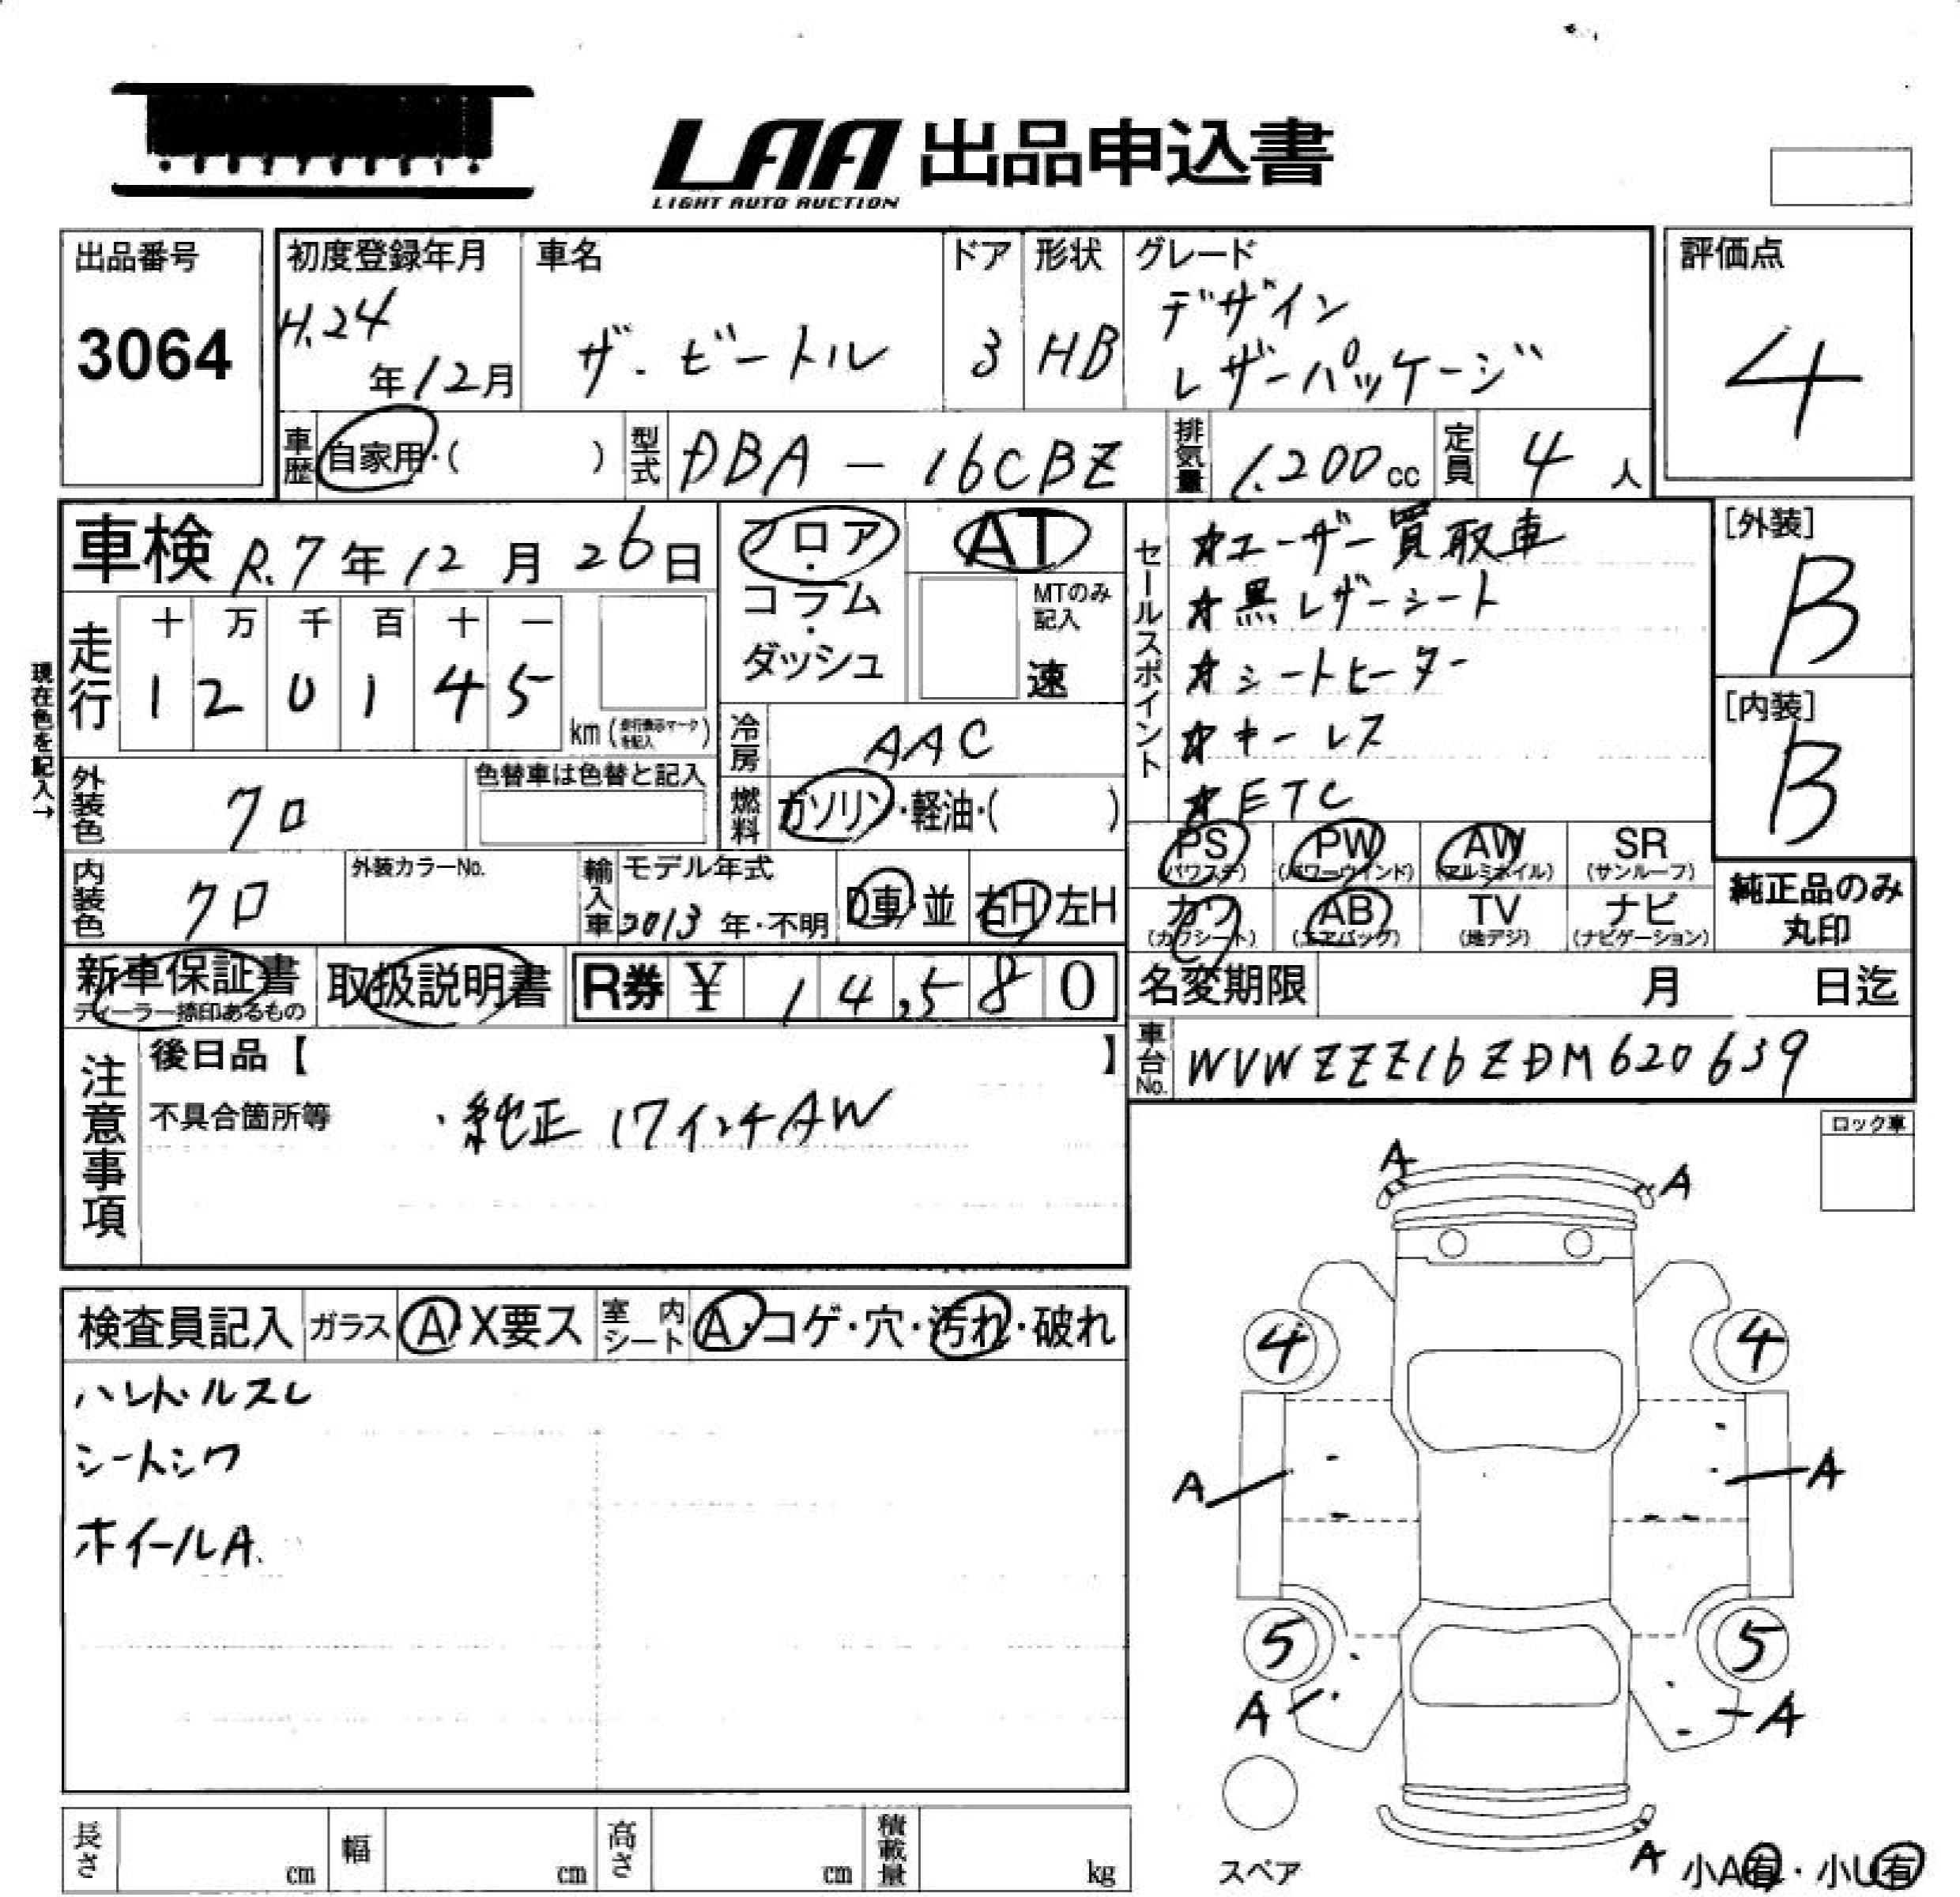 LAA 出品申込書
LIGHT AUTO AUCTION
出品番号
3064
初度登録年月
H.24
年12月
車名
ザ・ビートル
ドア
3
形状
HB
グレード
デザイン
レザーパッケージ
評価点
4
車歴
自家用・( )
型式
DBA-16CBZ
排気量
1.200cc
定員
4人
車検 R.7年12月26日
フロア・
コラム・
ダッシュ
AT
MTのみ
記入
速
セールスポイント
☆ユーザー買取車
☆黒レザーシート
☆シートヒーター
☆キーレス
☆ETC
[外装]
B
[内装]
B
現在色を記入→
走行
十 万 千 百 十 一
1 2 0 1 4 5
km (走行表示マークを記入)
冷房
AAC
外装色
クロ
色替車は色替と記入
燃料
ガソリン・軽油・( )
PS
(パワステ)
PW
(パワーウインド)
AW
(アルミホイル)
SR
(サンルーフ)
内装色
クロ
外装カラーNo.
輸入車
モデル年式
2013年・不明
D車・並
右H・左H
カワ
(カワシート)
AB
(エアバッグ)
TV
(地デジ)
ナビ
(ナビゲーション)
純正品のみ
丸印
新車保証書
ディーラー捺印あるもの
取扱説明書
R券 ¥ 14,580
名変期限 月 日迄
車台No.
WVWZZZ16ZDM620639
注意事項
後日品【 】
不具合箇所等
・純正17インチAW
ロック車
A
A
検査員記入
ガラス
A・X要ス
室内シート
A・コゲ・穴・汚れ・破れ
ハンドルスレ
シートシワ
ホイールA
4
4
A
A
5
5
A
A
スペア
A
小A有・小U有
長さ cm
幅 cm
高さ cm
積載量 kg